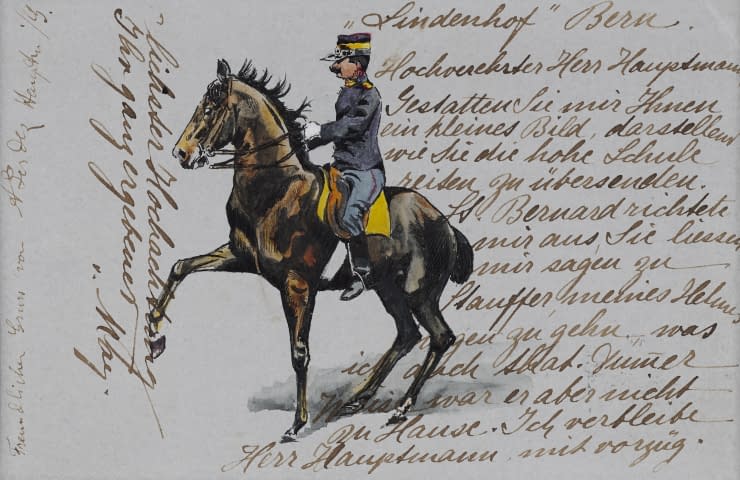 „Lindenhof" Bern.
Hochverehrter Herr Hauptmann
Gestatten Sie mir Ihnen
ein kleines Bild, darstellend
wie Sie die hohe Schule
reiten zu übersenden.
St Bernard richtete
mir aus, Sie liessen
mir sagen zu
Stauffer meines Helmes
wegen zu gehn was
ich auch that. Dummer
Weise war er aber nicht
zu Hause. Ich verbleibe
Herr Hauptmann mit vorzüg.
lichster Hochachtung
Ihr ganz ergebener
v. May.
Freundlicher Gruss von